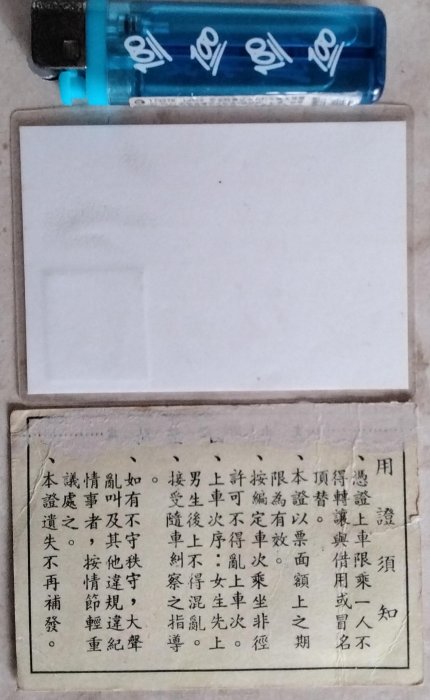 100 100 100 100
用證須知
、憑證上車限乘一人不
得轉讓與借用或冒名
頂替。
、本證以票面額上之期
限為有效。
、按編定車次乘坐非徑
許可不得亂上車次。
、上車次序：女生先上
男生後上不得混亂。
、接受隨車糾察之指導
。
、如有不守秩守，大聲
亂叫及其他違規違紀
情事者，按情節輕重
議處之。
、本證遺失不再補發。